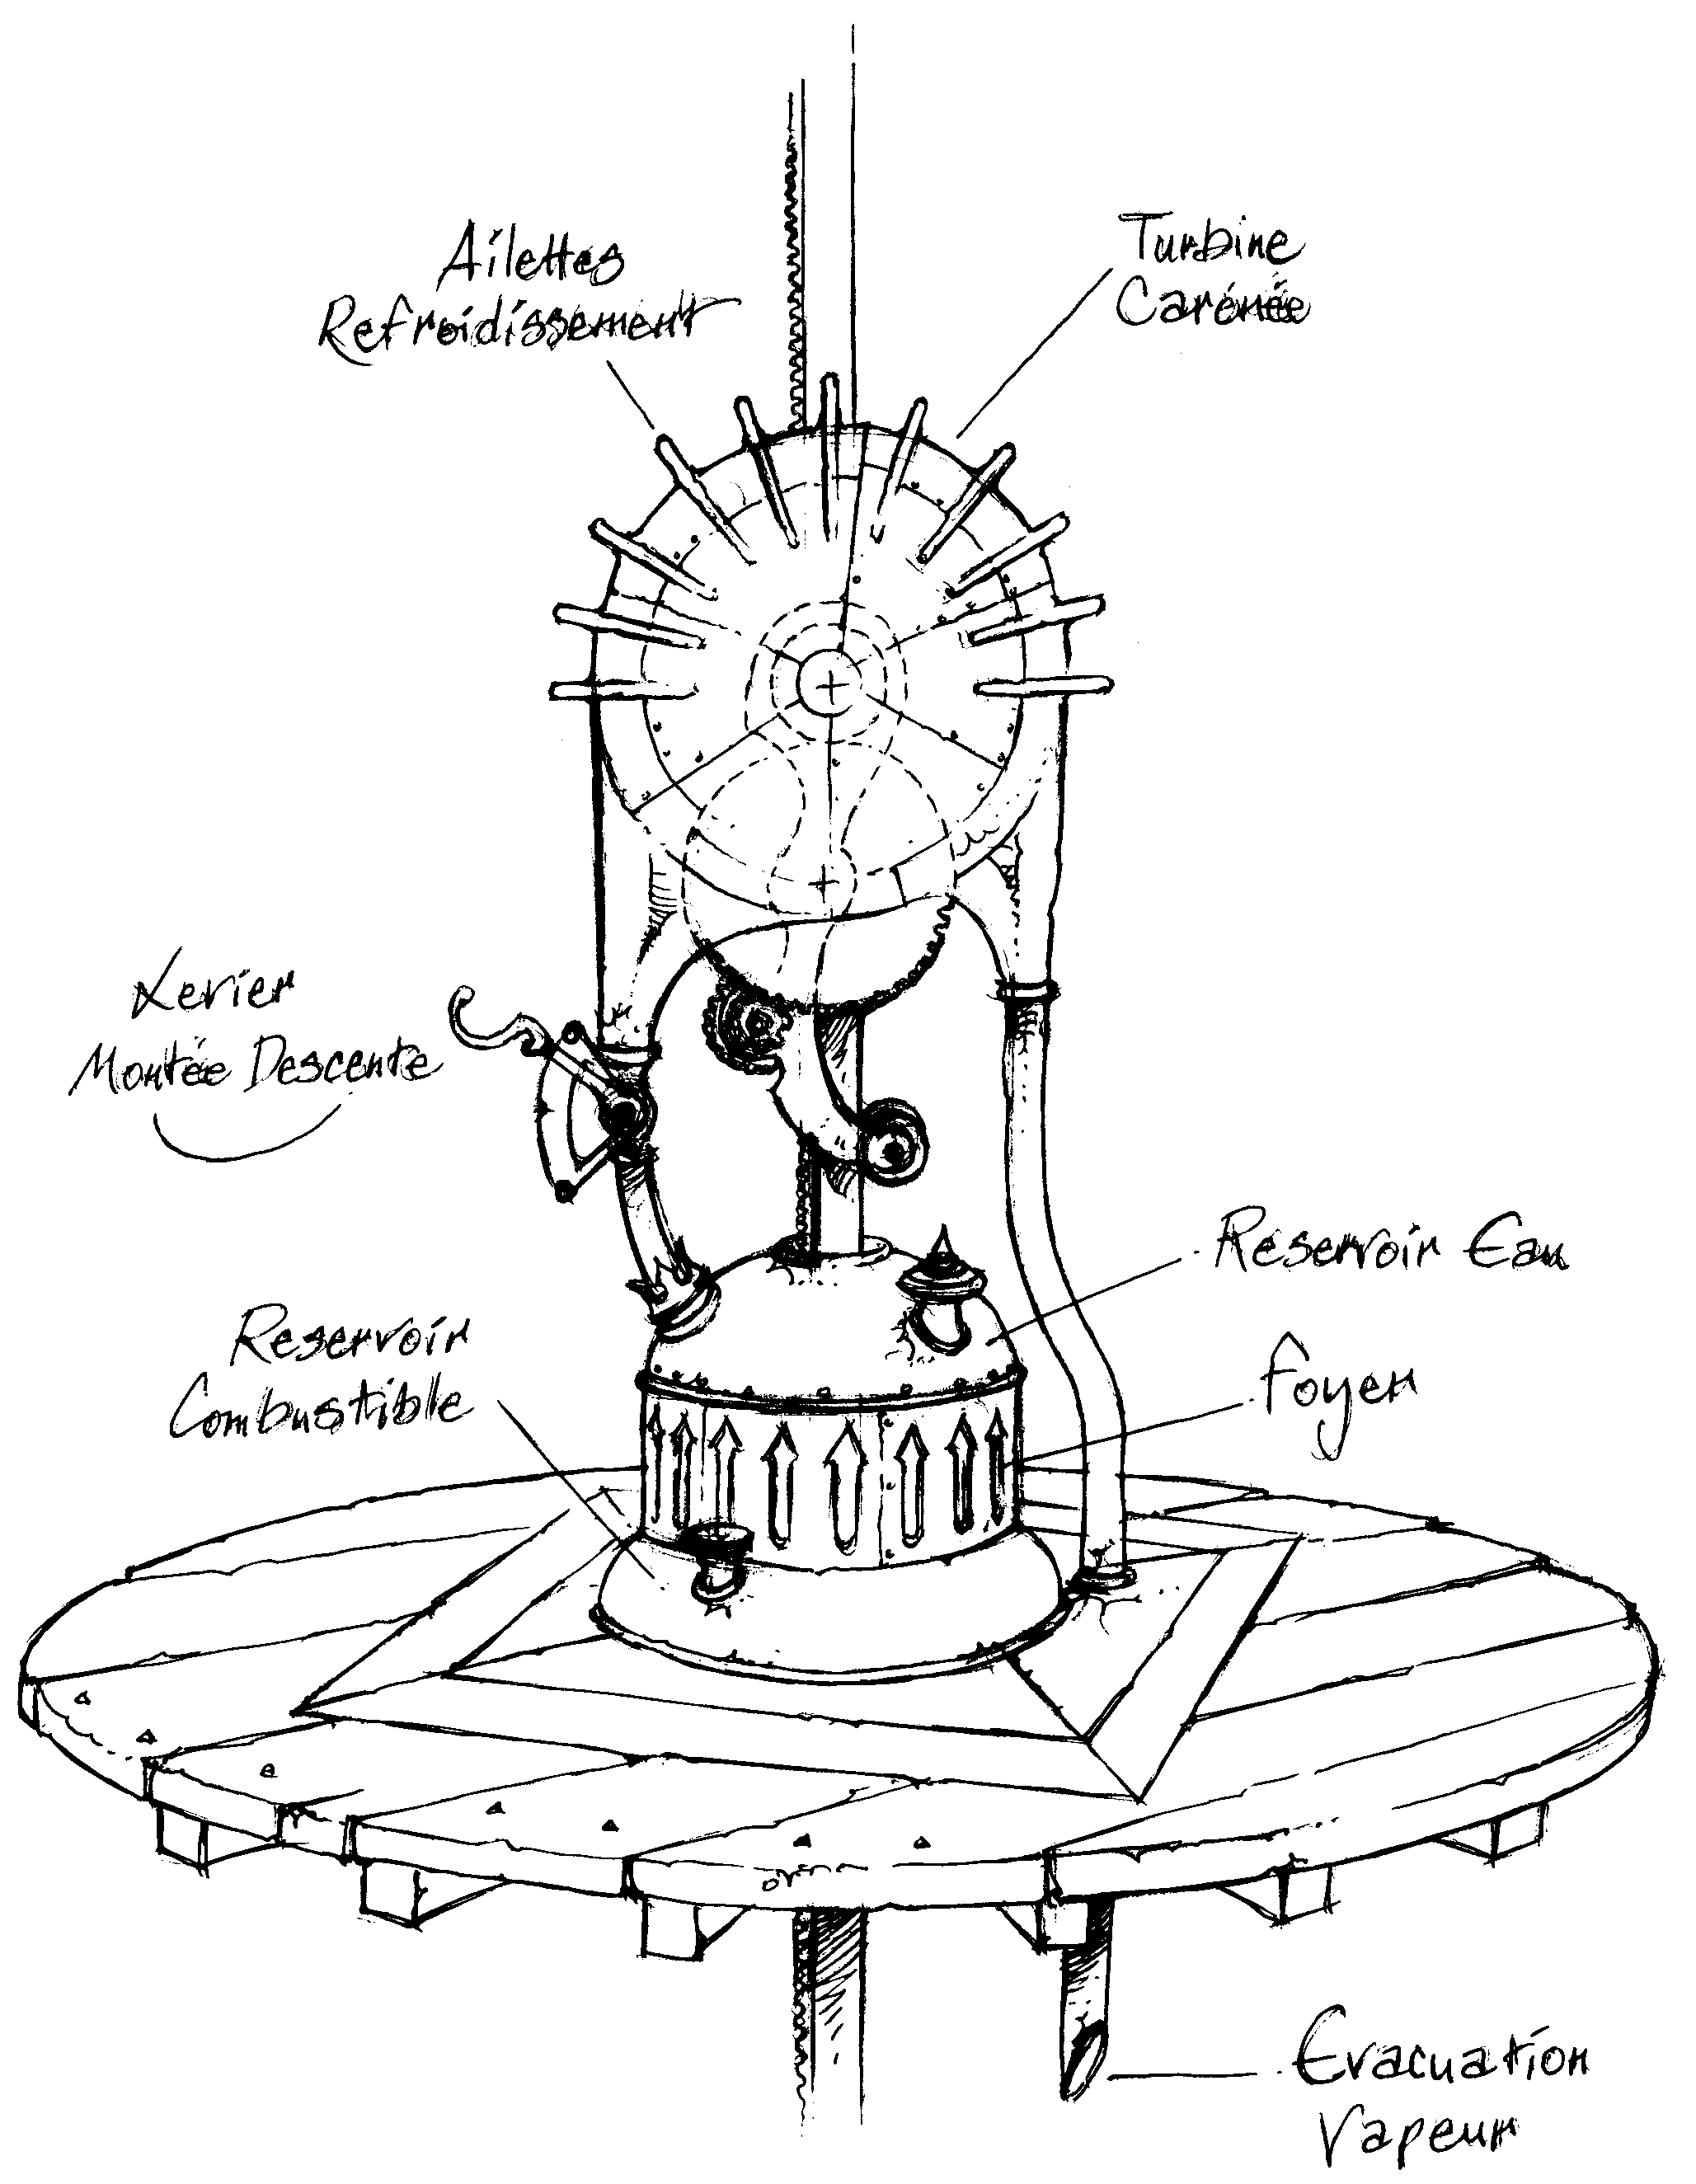 Ailettes
Refroidissement
Turbine
Carénée
Levier
Montée Descente
Reservoir Eau
Reservoir
Combustible
Foyer
Evacuation
Vapeur